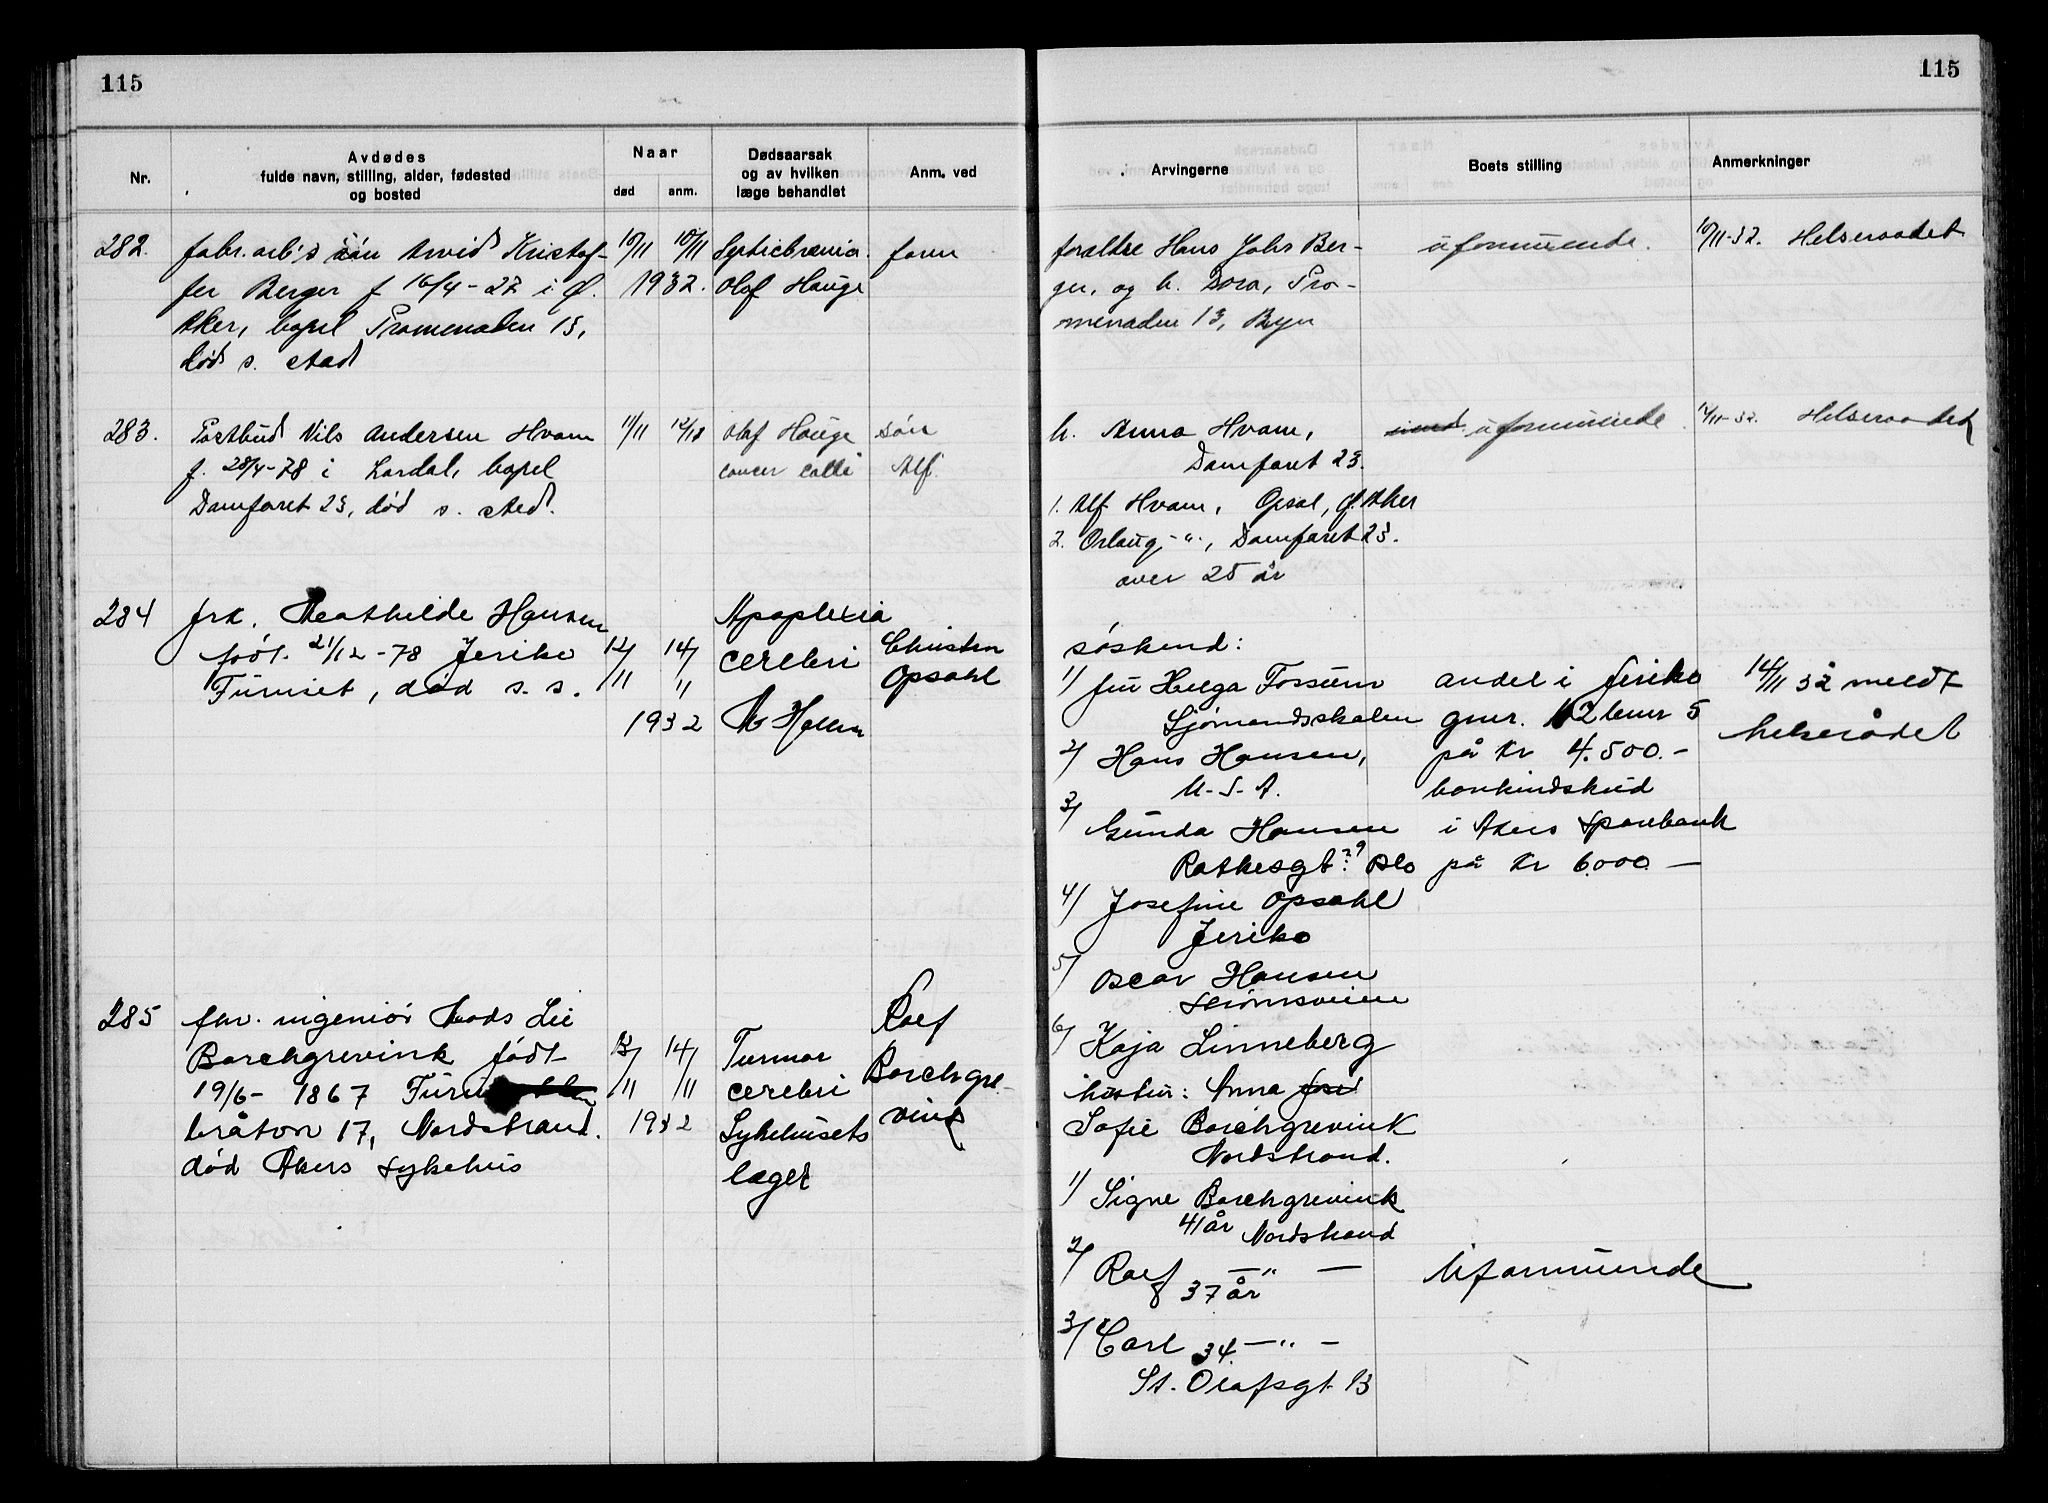 115
115
Nr.
Avdødes
fulde navn, stilling, alder, fødested
og bosted
Naar
død
anm.
Dødsaarsak
og av hvilken
læge behandlet
Anm. ved
Arvingerne
Boets stilling
Anmerkninger
282.
fabr. arb's sön Arvid Kristof-
fer Berger f 16/4-27 i Ø.
Aker, bopel Promenaden 13,
död s. sted
10/11
10/11
1932.
Olof Hauge
faren
foreldre Hans Johs Ber-
ger, og h. Dora, Pro-
menaden 13, Byen
uformuende.
10/11-32. Helseraadet
283.
Postbud Nils Andersen Hvam
f. 28/4-78 i Lardal, bopel
Damfaret 23, död s. sted.
11/11
12/11
Olaf Hauge
cancer colli
sön
Alf.
h. Anna Hvam,
Damfaret 23.
1. Alf Hvam, Opsal, Ø. Aker
2. Oslaug -"-, Damfaret 23.
over 25 år
uformuende.
12/11-32. Helseraadet
284
frk. Mathilde Hansen
født. 21/12-78 Jeriko
Furuset, död s. s.
12/11
14/11
1932
Apoplexia
cerebri
Christen
Opsahl
søskend:
1/ fru Helga Fossum
Sjömandsskolen
2/ Hans Hansen,
U-S-A.
3/ Gunda Hansen
Rathesgt ?9 Oslo
4/ Josefine Opsahl
Jeriko
5/ Oscar Hansen
Strömsveien
6/ Kaja Linneberg
andel i Jeriko
gnr. 102 bnr 5
på Kr 4.500.-
bankindskud
i Akers Sparebank
på Kr 6000 —
14/11 32 meldt
helserådet
285
fhv. ingeniör Mads Lie
Borchgrevink født
19/6- 1867 Furu
bråten 17, Nordstrand.
død Akers sykehus
13/11
14/11
1932
Tumor
cerebri
Sykehusets
læger
Rolf
Borchgre-
vink
hustru: Anna
Sofie Borchgrevink
Nordstrand.
1/ Signe Borchgrevink
41 år Nordstrand
2/ Rolf —"—
37 år
3/ Carl 34 —"—
St. Olafsgt 13
Uformuende